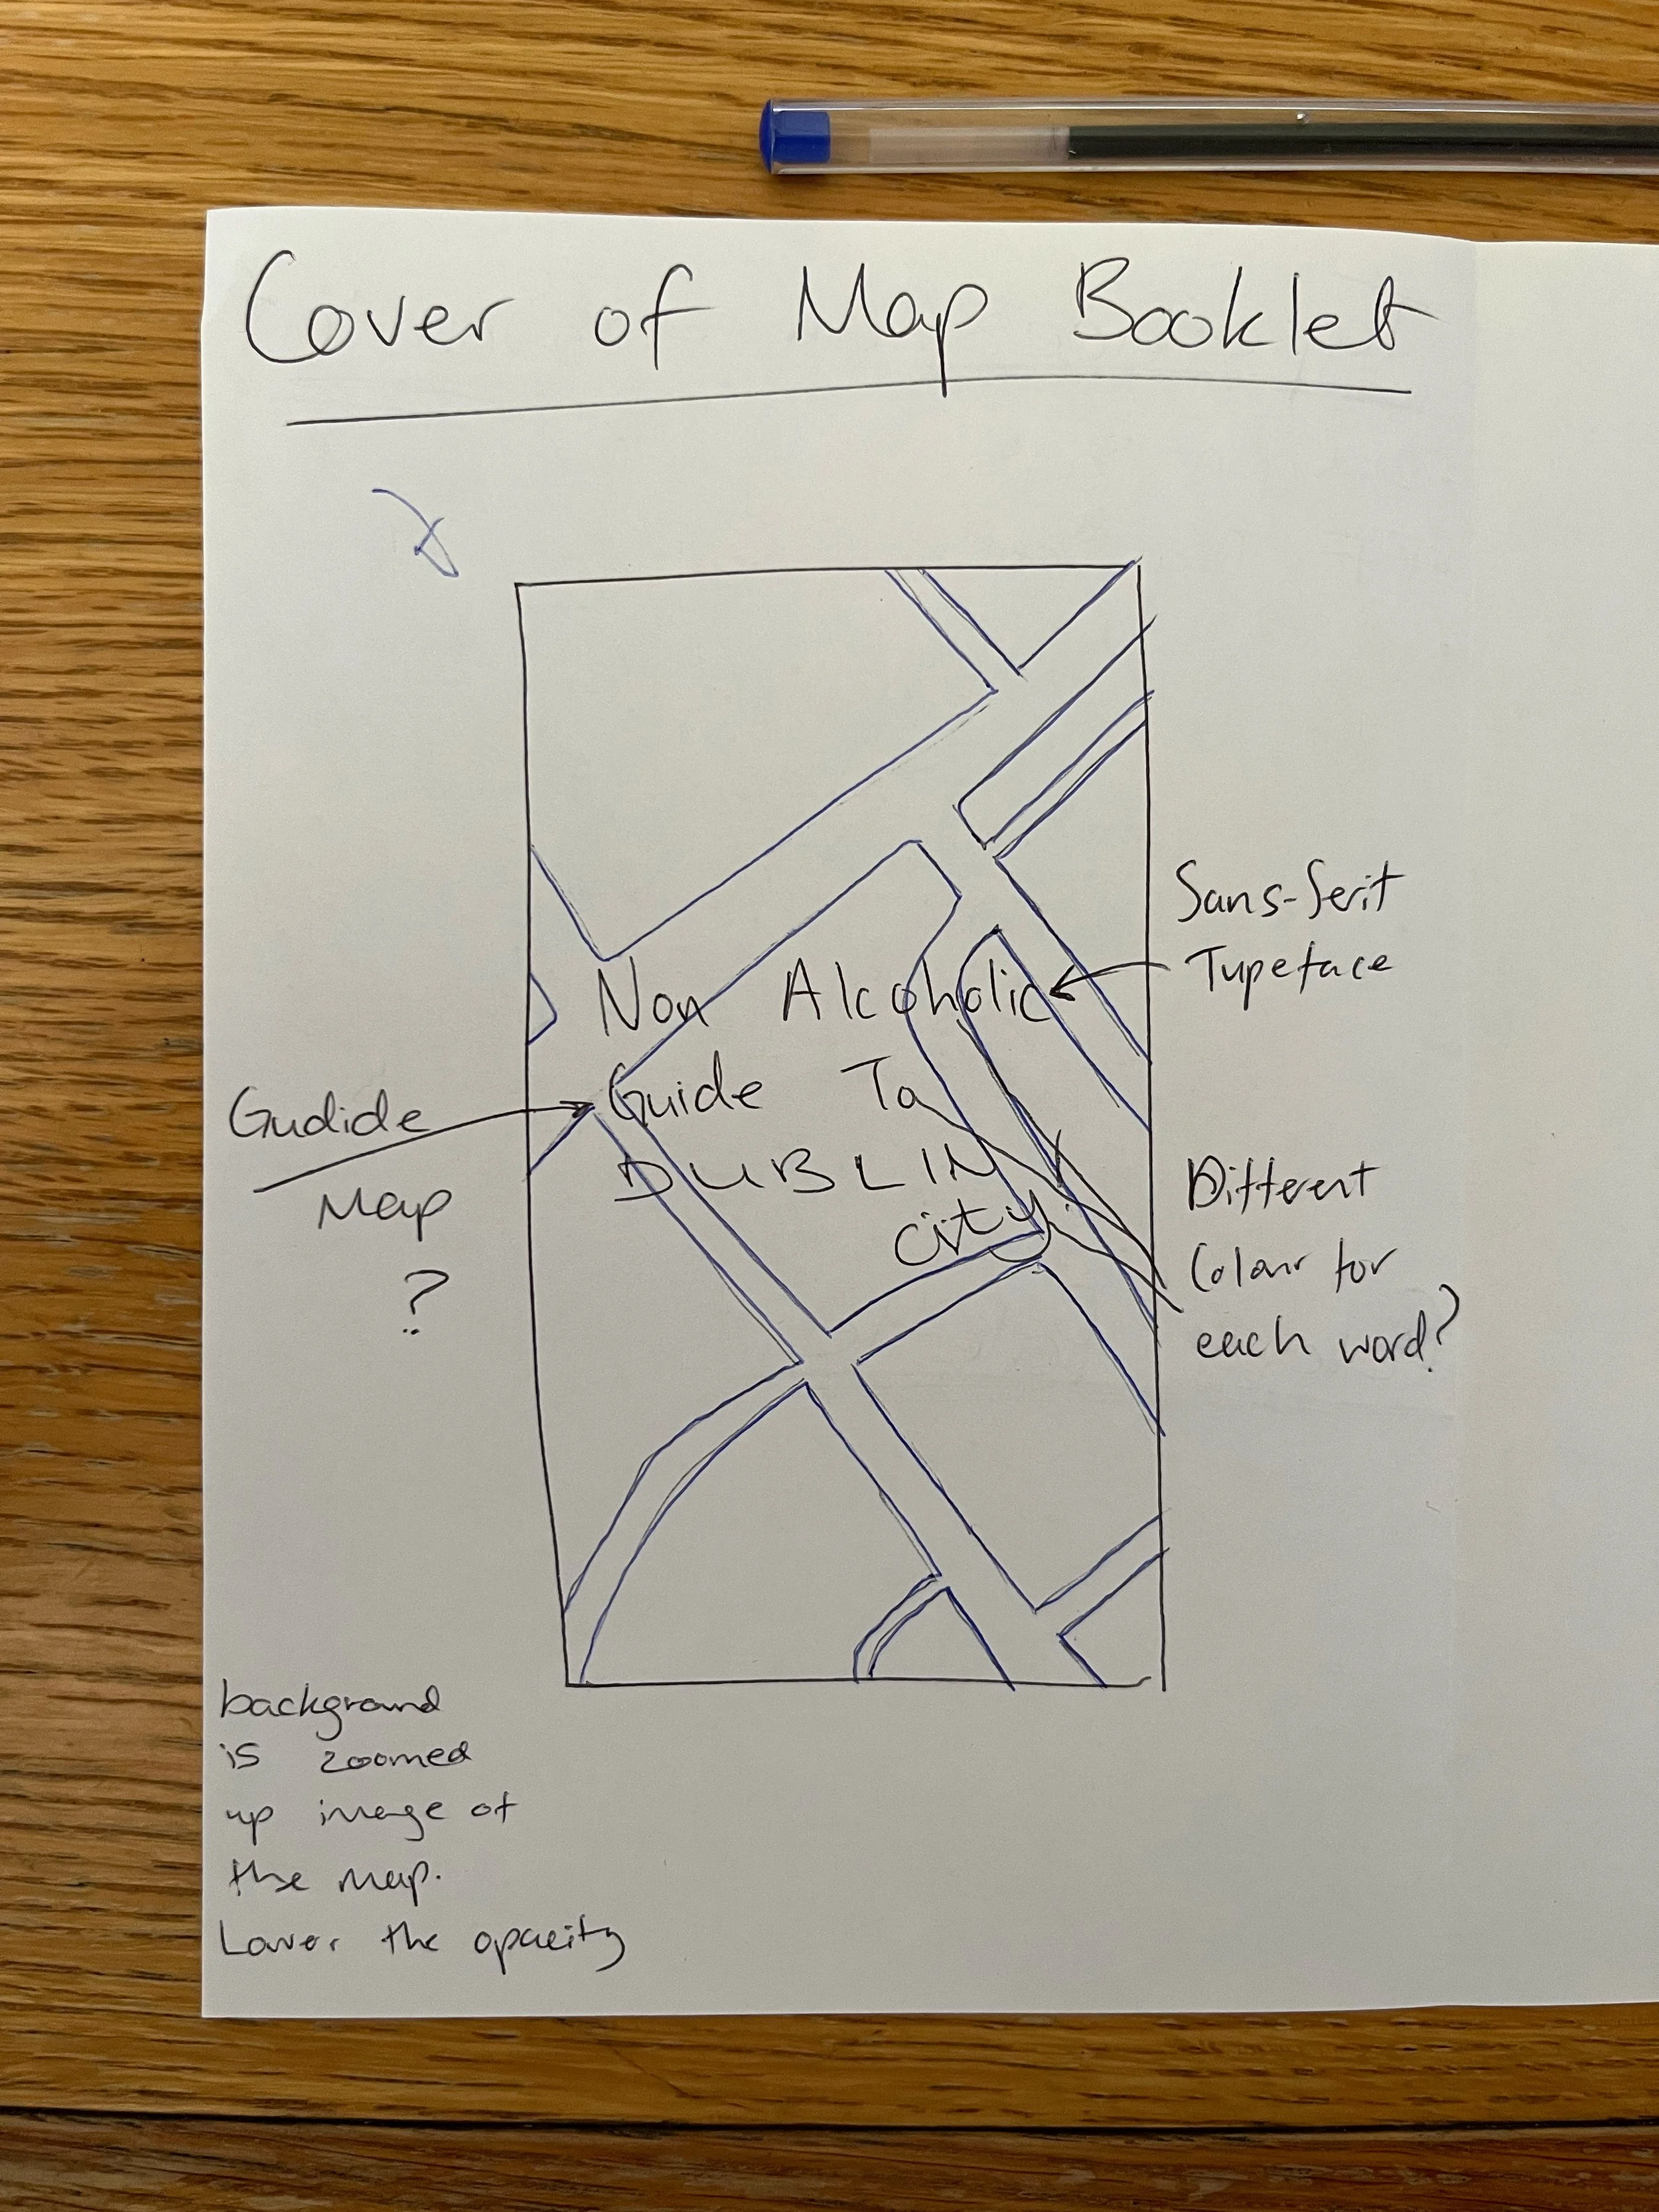 Cover of Map Booklet
Sans-Serif
Typeface
Non Alcoholic
Guide To
DUBLIN
City
Gudide
Map
?
Different
Colour for
each word?
background
is zoomed
up image of
the map.
Lower the opacity